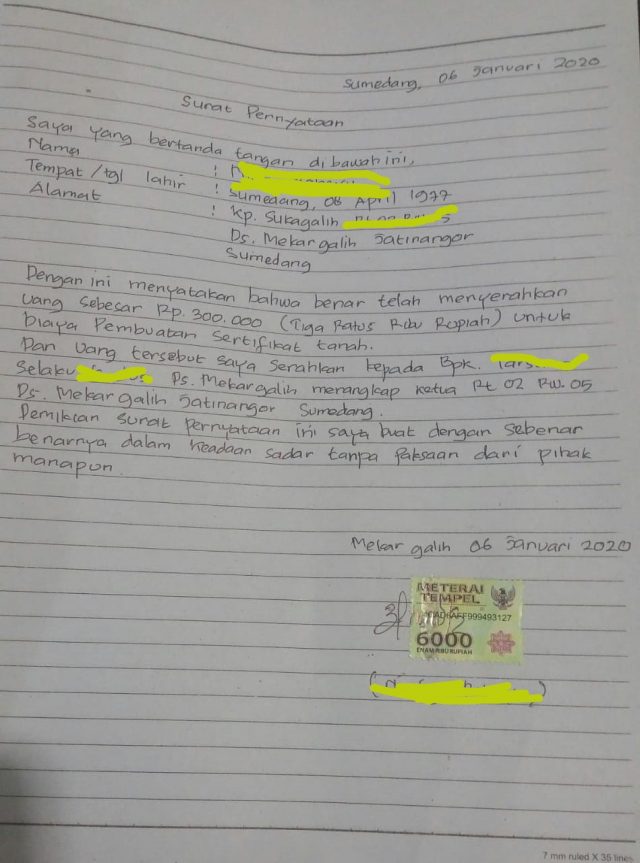 Sumedang, 06 Januari 2020
Surat Pernyataan
Saya yang bertanda tangan dibawah ini,
Nama :
Tempat/tgl lahir : Sumedang, 08 April 1977
Alamat : Kp. Sukagalih
Ds. Mekargalih Jatinangor
Sumedang
Dengan ini menyatakan bahwa benar telah menyerahkan
uang sebesar Rp. 300.000 (Tiga Ratus Ribu Rupiah) untuk
biaya Pembuatan Sertifikat tanah.
Dan uang tersebut saya serahkan kepada Bpk.
Selaku Ds. Mekargalih merangkap ketua Rt 02 Rw. 05
Ds. Mekargalih Jatinangor Sumedang.
Demikian surat pernyataan ini saya buat dengan sebenar
benarnya dalam keadaan sadar tanpa paksaan dari pihak
manapun.
Mekar galih 06 Januari 2020
METERAI
TEMPEL
FF999493127
6000
ENAM RIBU RUPIAH
7 mm ruled X 35 lines